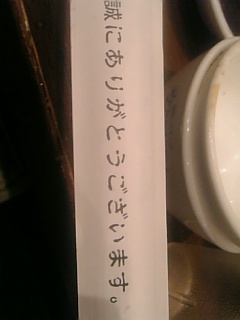 誠にありがとうございます。